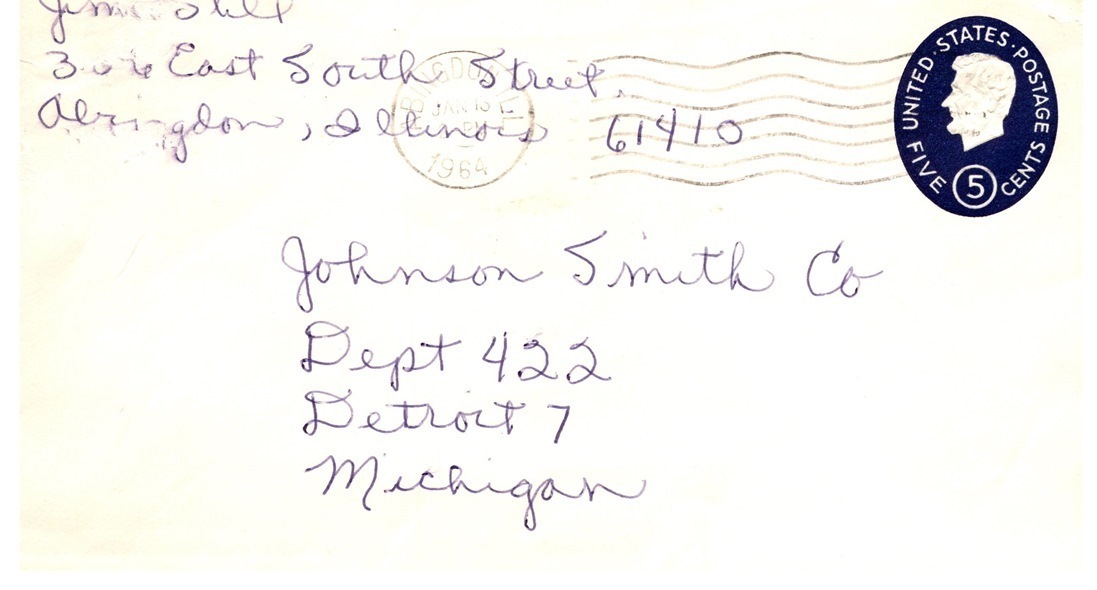 306 East South Street,
Abringdon, Illinois 61410
JAN 13
1964
UNITED·STATES·POSTAGE
FIVE 5 CENTS
Johnson Smith Co
Dept 422
Detroit 7
Michigan